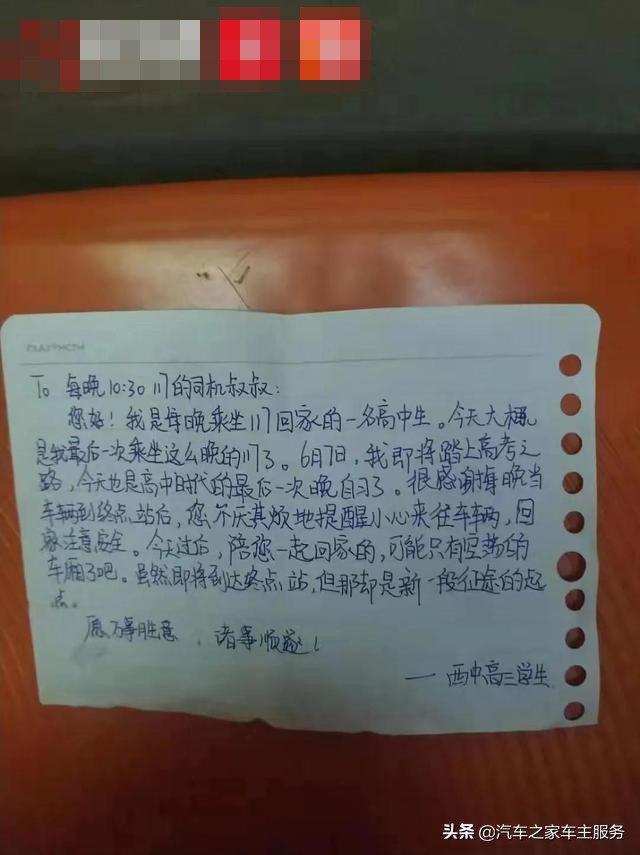 To 每晚10:30 117的司机叔叔:
您好！我是每晚乘坐117回家的一名高中生。今天大概
是我最后一次乘坐这么晚的117了。6月7日，我即将踏上高考之
路，今天也是高中时代的最后一次晚自习了。很感谢每晚当
车辆到终点站后，您不厌其烦地提醒小心来往车辆，回
家注意安全。今天过后，陪您一起回家的，可能只有空荡的
车厢了吧。虽然即将到达终点站，但那却是新一段征途的起
点。
愿万事胜意，诸事顺遂！
——西中高三学生
头条 @汽车之家车主服务